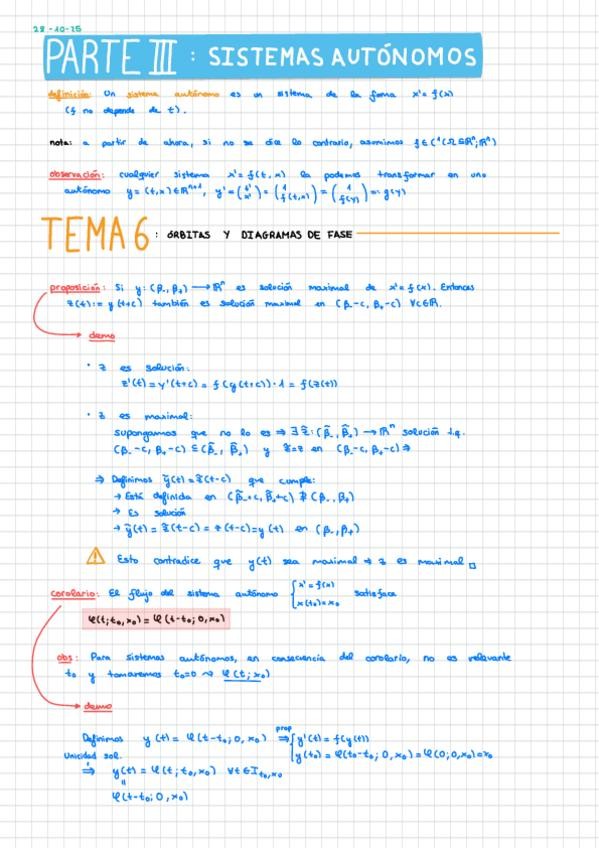 28-10-25
PARTE III : SISTEMAS AUTÓNOMOS
definición: Un sistema autónomo es un sistema de la forma x' = f(x)
(f no depende de t).
nota: a partir de ahora, si no se dice lo contrario, asumimos f∈C¹(Ω⊆ℝⁿ;ℝⁿ)
observación: cualquier sistema x' = f(t,x) lo podemos transformar en uno
autónomo y = (t,x)∈ℝⁿ⁺¹, y' = (t' x') = (1 f(t,x)) = (1 f(y)) =: g(y)
TEMA 6 : ÓRBITAS Y DIAGRAMAS DE FASE
proposición: Si y: (β₋,β₊) → ℝⁿ es solución maximal de x' = f(x). Entonces
z(t) := y(t+c) también es solución maximal en (β₋-c, β₊-c) ∀c∈ℝ.
demo
· z es solución:
z'(t) = y'(t+c) = f(y(t+c))·1 = f(z(t))
· z es maximal:
supongamos que no lo es ⇒ ∃ z̃: (β̃₋, β̃₊) → ℝⁿ solución t.q.
(β₋-c, β₊-c) ⊊ (β̃₋, β̃₊) y z̃=z en (β₋-c, β₊-c) ⇒
⇒ Definimos ỹ(t) = z̃(t-c) que cumple:
→ Está definida en (β̃₋+c, β̃₊+c) ⊋ (β₋, β₊)
→ Es solución
→ ỹ(t) = z̃(t-c) = z(t-c) = y(t) en (β₋, β₊)
⚠ Esto contradice que y(t) sea maximal ⇒ z es maximal □
corolario: El flujo del sistema autónomo { x' = f(x) x(t₀) = x₀ satisface
φ(t; t₀, x₀) = φ(t-t₀; 0, x₀)
obs: Para sistemas autónomos, en consecuencia del corolario, no es relevante
t₀ y tomaremos t₀=0 ⇝ φ(t; x₀)
demo
Definimos y(t) = φ(t-t₀; 0, x₀) prop ⇒ { y'(t) = f(y(t))
y(t₀) = φ(t₀-t₀; 0, x₀) = φ(0; 0, x₀) = x₀
Unicidad sol.
⇒ y(t) = φ(t; t₀, x₀) ∀t∈I t₀,x₀
"
φ(t-t₀; 0, x₀)